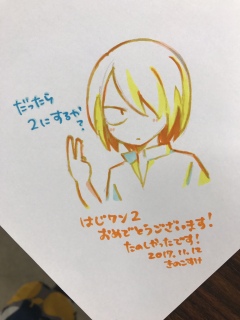 だったら
2にするか?
はじワン2
おめでとうございます!
たのしかったです!
2017.11.12
きのこすけ